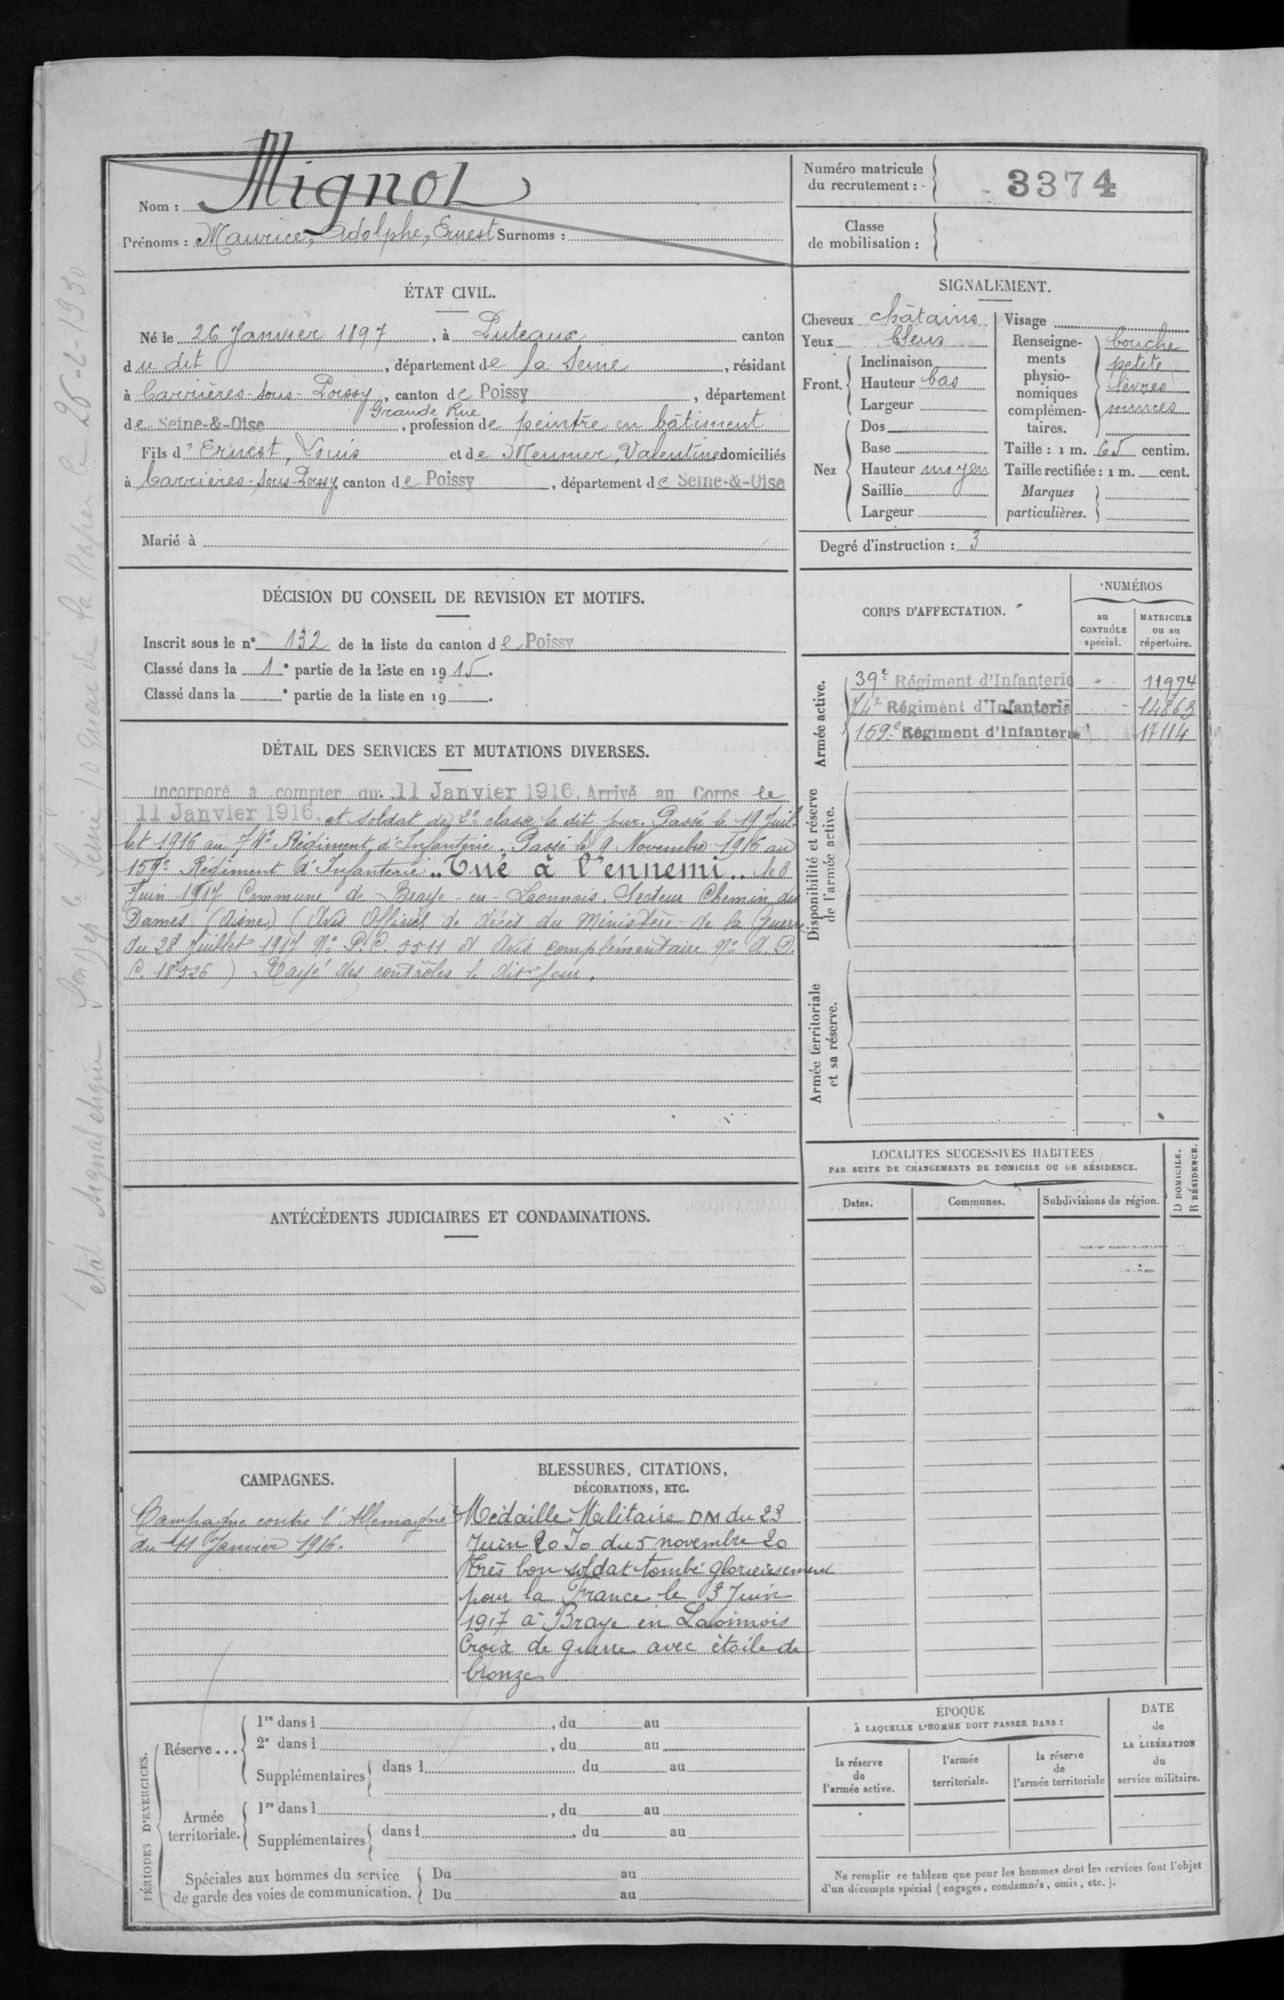 Nom : Mignot
Prénoms : Maurice, Adolphe, Ernest Surnoms :
Numéro matricule
du recrutement : 3374
Classe
de mobilisation :
ÉTAT CIVIL.
Né le 26 Janvier 1897, à Puteaux canton
du dit, département de la Seine, résidant
à Carrières-sous-Poissy, canton de Poissy, département
Grande Rue
de Seine-&-Oise, profession de peintre en bâtiment
Fils d'Ernest, Louis et de Meunier, Valentine domiciliés
à Carrières-sous-Poissy, canton de Poissy, département de Seine-&-Oise
Marié à
SIGNALEMENT.
Cheveux châtains
Yeux bleus
Front.
Inclinaison
Hauteur bas
Largeur
Nez
Dos
Base
Hauteur moyen
Saillie
Largeur
Visage
Renseigne-
ments
physio-
nomiques
complémen-
taires.
bouche
petite
lèvres
minces
Taille : 1 m. 65 centim.
Taille rectifiée : 1 m. cent.
Marques
particulières.
Degré d'instruction : 3
DÉCISION DU CONSEIL DE REVISION ET MOTIFS.
Inscrit sous le n° 132 de la liste du canton de Poissy
Classé dans la 1e partie de la liste en 1915.
Classé dans la e partie de la liste en 19 .
CORPS D'AFFECTATION.
NUMÉROS
au
CONTRÔLE
spécial.
MATRICULE
ou au
répertoire.
Armée active.
39e Régiment d'Infanterie " 11974
74e Régiment d'Infanterie - 14863
159e Régiment d'Infanterie " 17114
Disponibilité et réserve
de l'armée active.
Armée territoriale
et sa réserve.
DÉTAIL DES SERVICES ET MUTATIONS DIVERSES.
Incorporé à compter du 11 Janvier 1916. Arrivé au Corps le
11 Janvier 1916. et soldat de 2e classe le dit jour. Passé le 19 Juil
let 1916 au 74e Régiment d'Infanterie. Passé le 9 Novembre 1916 au
159e Régiment d'Infanterie. "Tué à l'ennemi" le 8
Juin 1917 Commune de Braye-en-Laonnois, Secteur Chemin des
Dames (Aisne) (Avis Officiel de décès du Ministère de la Guerre
du 28 Juillet 1917 N° P.C. 5511 et Avis complémentaire N° A.D.
C 18526) Rayé des contrôles le dit jour.
LOCALITES SUCCESSIVES HABITEES
PAR SUITE DE CHANGEMENTS DE DOMICILE OU DE RÉSIDENCE.
Dates. Communes. Subdivisions de région.
D DOMICILE.
R RÉSIDENCE.
ANTÉCÉDENTS JUDICIAIRES ET CONDAMNATIONS.
CAMPAGNES.
Campagne contre l'Allemagne
du 11 Janvier 1916.
BLESSURES, CITATIONS,
DÉCORATIONS, ETC.
Médaille Militaire DM du 23
Juin 20 Jo du 5 novembre 20
Très bon soldat tombé glorieusement
pour la France le 3 Juin
1917 à Braye en Laonnois
Croix de guerre avec étoile de
bronze
PÉRIODES D'EXERCICES.
Réserve ...
1re dans l , du au
2e dans l , du au
Supplémentaires dans l du au
Armée
territoriale.
1re dans l , du au
Supplémentaires dans l , du au
Spéciales aux hommes du service
de garde des voies de communication.
Du au
Du au
ÉPOQUE
À LAQUELLE L'HOMME DOIT PASSER DANS :
la réserve
de
l'armée active.
l'armée
territoriale.
la réserve
de
l'armée territoriale
DATE
de
LA LIBÉRATION
du
service militaire.
Ne remplir ce tableau que pour les hommes dont les services font l'objet
d'un décompte spécial (engagés, condamnés, omis, etc.).
état signalétique 10 quai de la Rapée le 26-2-1930